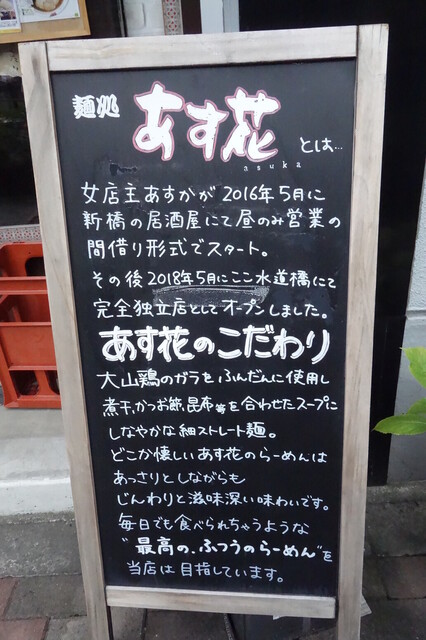 麺処 あす花 とは…
asuka
女店主あすかが 2016年5月に
新橋の居酒屋にて昼のみ営業の
間借り形式でスタート。
その後2018年5月にここ水道橋にて
完全独立店としてオープンしました。
あす花のこだわり
大山鶏のガラをふんだんに使用し
煮干、かつお節、昆布等を合わせたスープに
しなやかな細ストレート麺。
どこか懐しいあす花のらーめんは
あっさりとしながらも
じんわりと滋味深い味わいです。
毎日でも食べられちゃうような
"最高の、ふつうのらーめん"を
当店は目指しています。